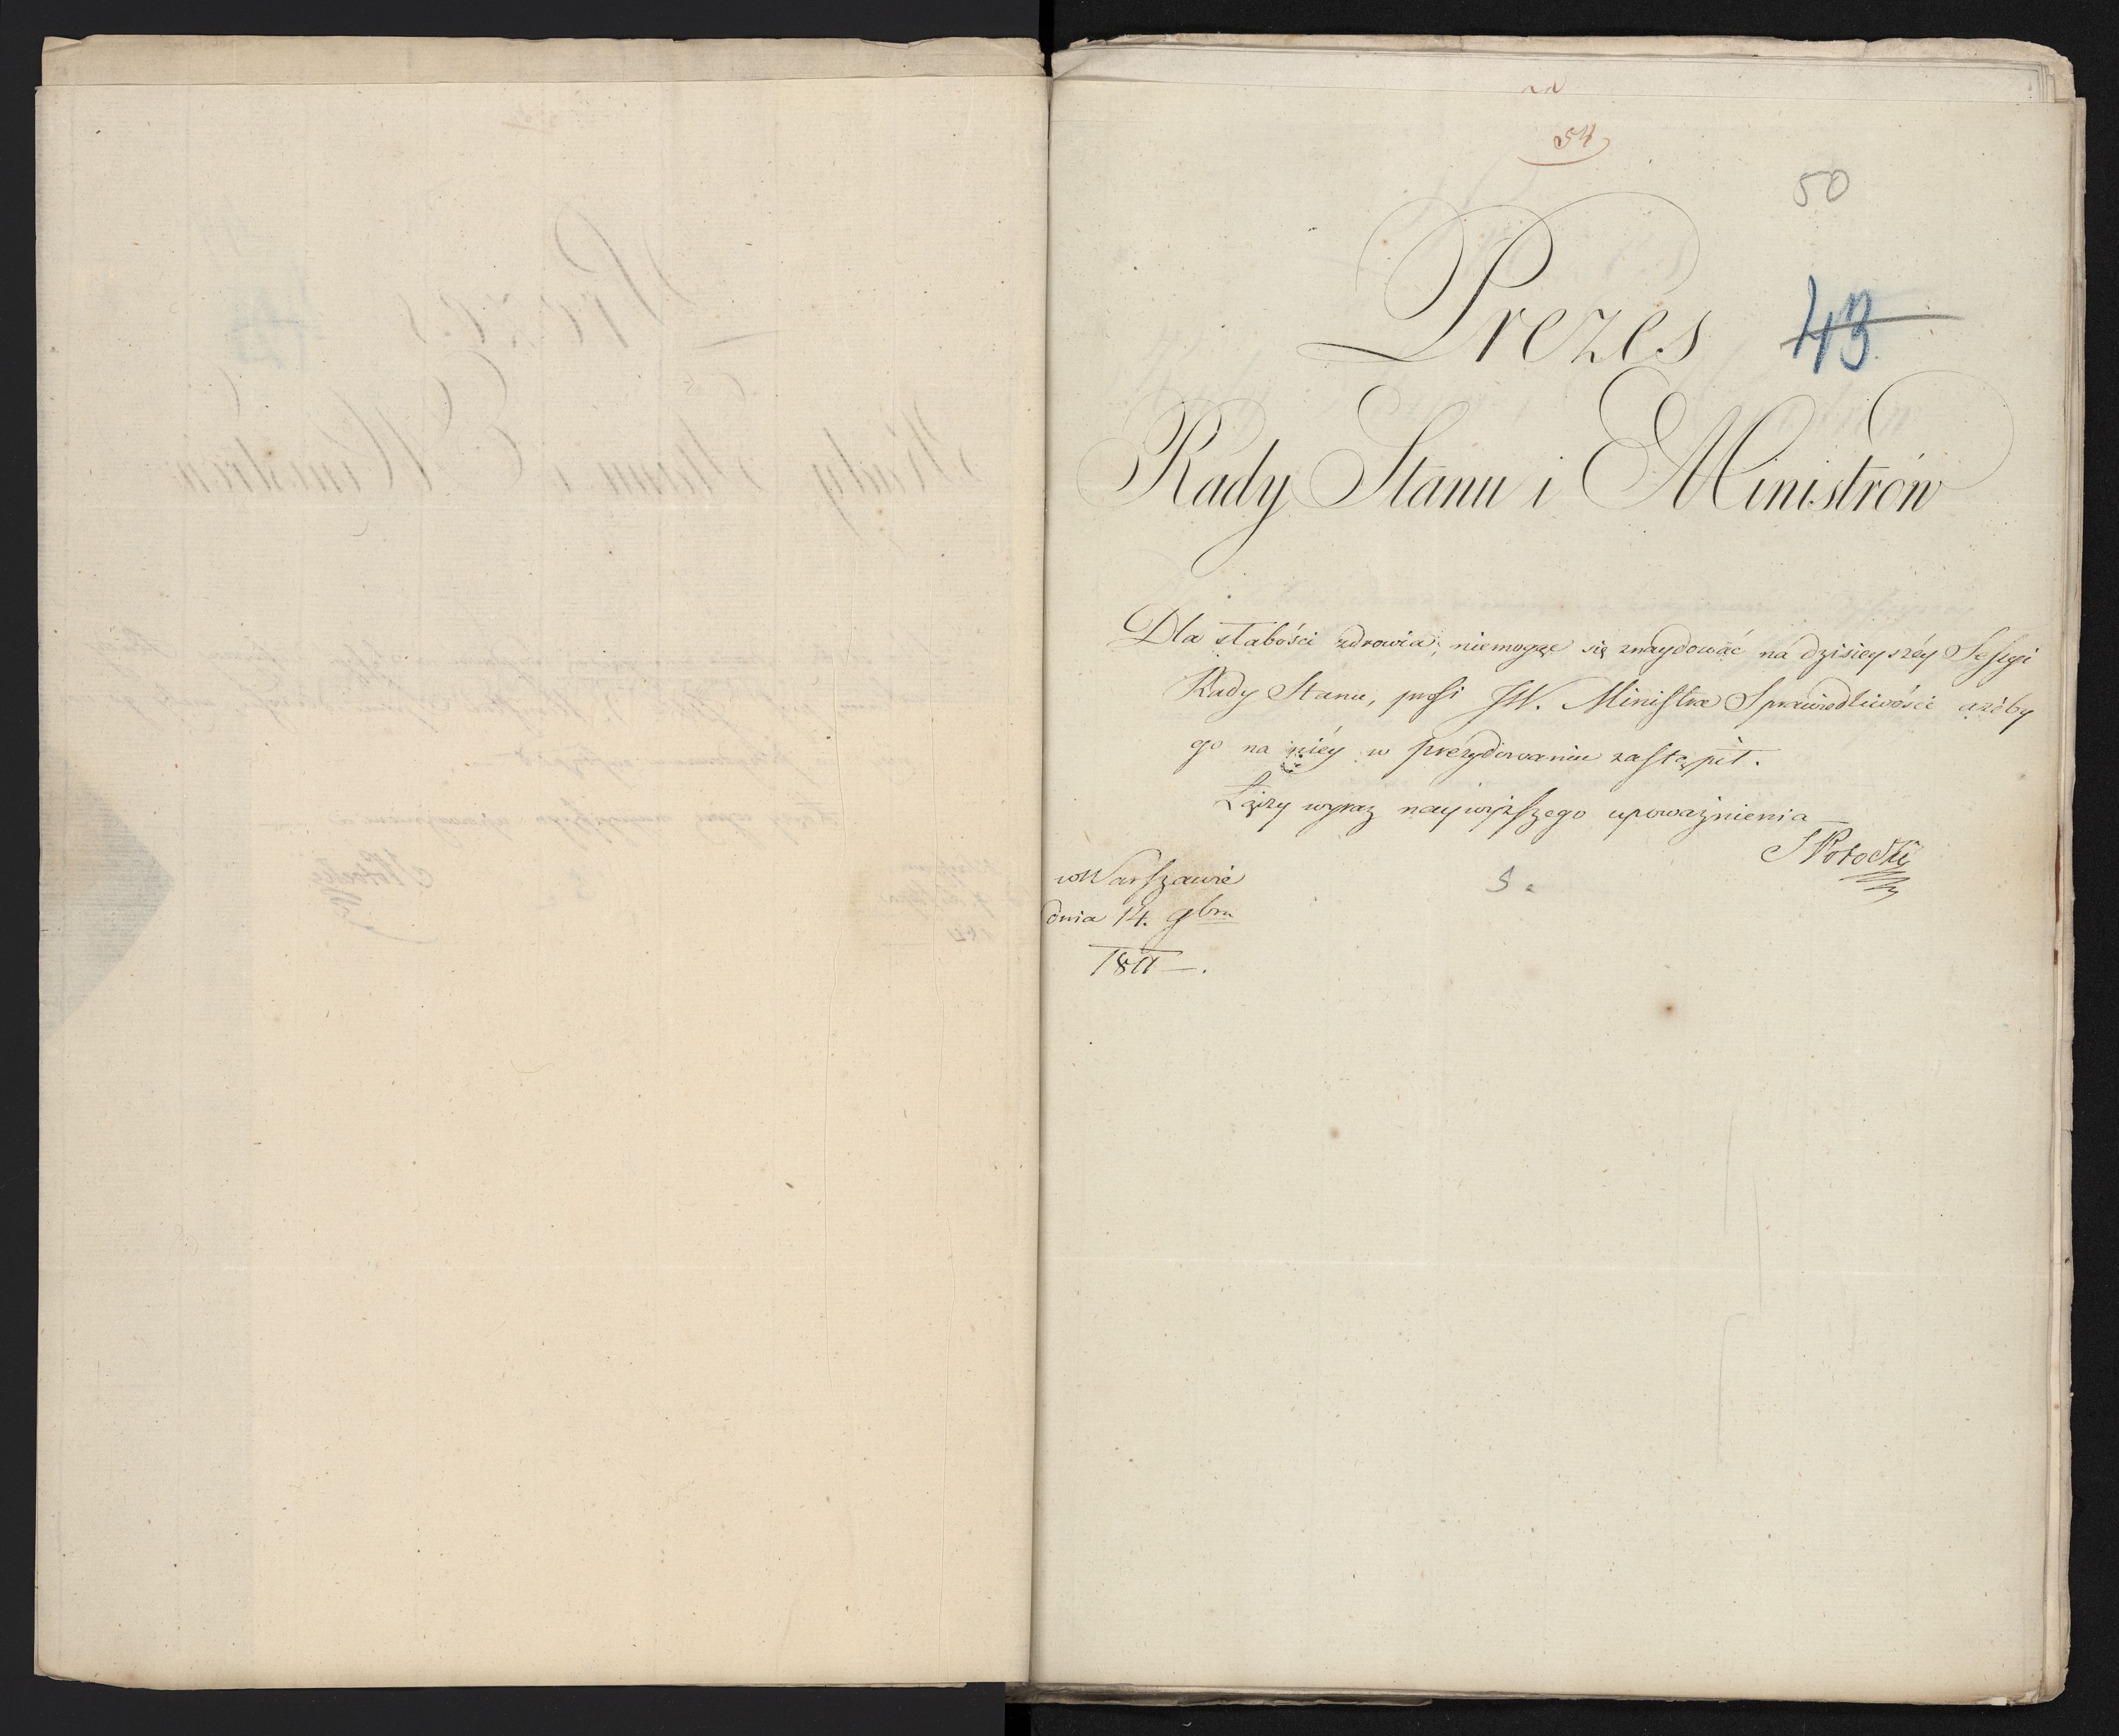 54
50
Prezes
43
Rady Stanu i Ministrów
Dla słabości zdrowia, niemogąc się znaydować na dzisieyszéy Sessyi
Rady Stanu, prosi JW. Ministra Sprawiedliwości ażeby
go na niéy w prezydowaniu zastąpił.
Łączy wyraz naywyższego upoważnienia
S Potocki
w Warszawie
dnia 14. 9bra
1811 —.